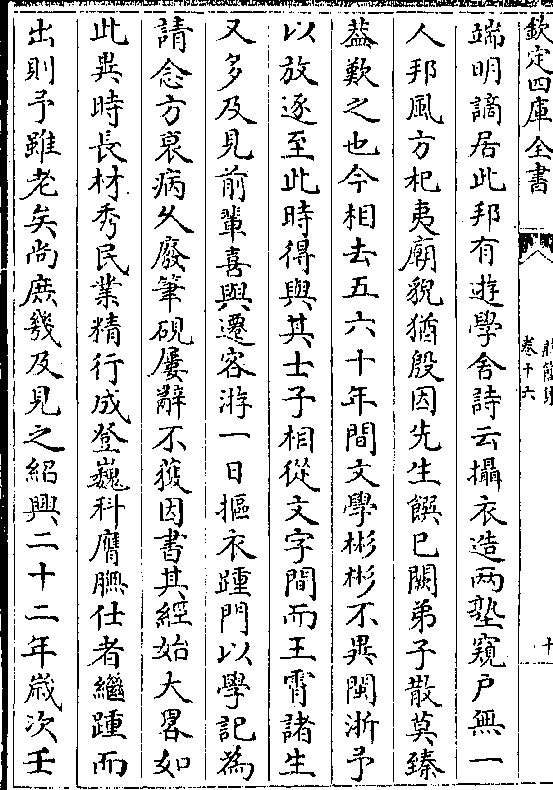 欽定四庫全書
卷十六
十
端明謫居此邦有遊學舍詩云攝衣造兩塾窺户無一
人邦風方杞夷廟貌猶殷因先生饌已闕弟子散莫臻
葢歎之也今相去五六十年間文學彬彬不異閩浙予
以放逐至此時得與其士子相從文字間而王霄諸生
又多及見前輩喜與遷客游一日摳衣踵門以學記為
請念方衰病乆廢筆硯屢辭不獲因書其經始大畧如
此異時長材秀民業精行成登巍科膺膴仕者繼踵而
出則予雖老矣尚庶幾及見之紹興二十二年嵗次壬